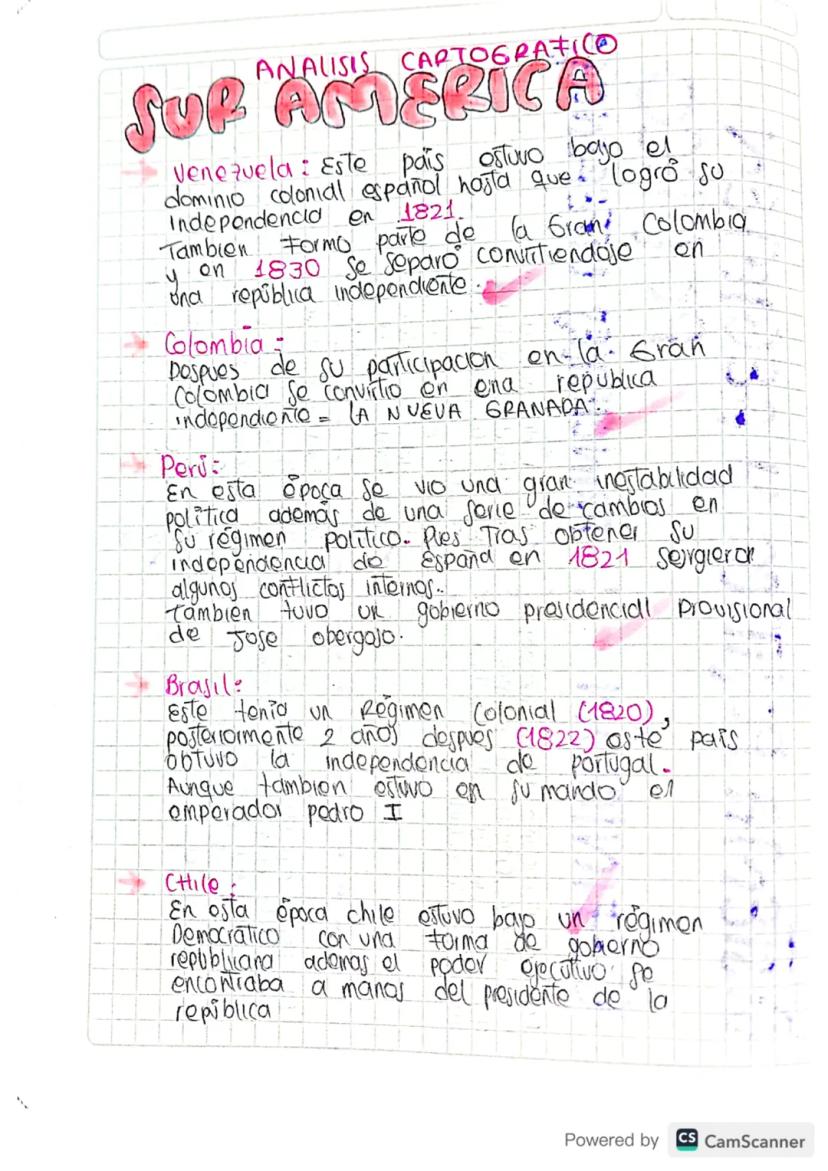 ANALISIS CARTOGRAFICO
SUR AMERICA
Venezuela: Este país estuvo bajo el
dominio colonial español hasta que logró su
independencia en 1821.
Tambien formo parte de la Gran Colombia
y en 1830 se separó convirtiendose en
una república independiente.
Colombia:
Despues de su participacion en la Gran
Colombia se convirtio en ena republica
independiente = LA NUEVA GRANADA.
Perú:
En esta época se vio una gran inestabilidad
política además de una serie de cambios en
su régimen político. Pues tras obtener su
independencia de España en 1821 sergieron
algunos conflictos internos.
Tambien tuvo un gobierno presidencial Provisional
de Jose obergojo.
Brasil:
Este tenia un Régimen Colonial (1820),
posteriormente 2 años despues (1822) este país
obtuvo la independencia de portugal.
Aunque tambien estuvo en su mando el
emperador pedro I
CHile:
En esta época chile estuvo bajo un régimen
Democrático con una forma de gobierno
republicana ademas el poder ejecutivo se
encontraba a manos del presidente de la
república
Powered by CS CamScanner